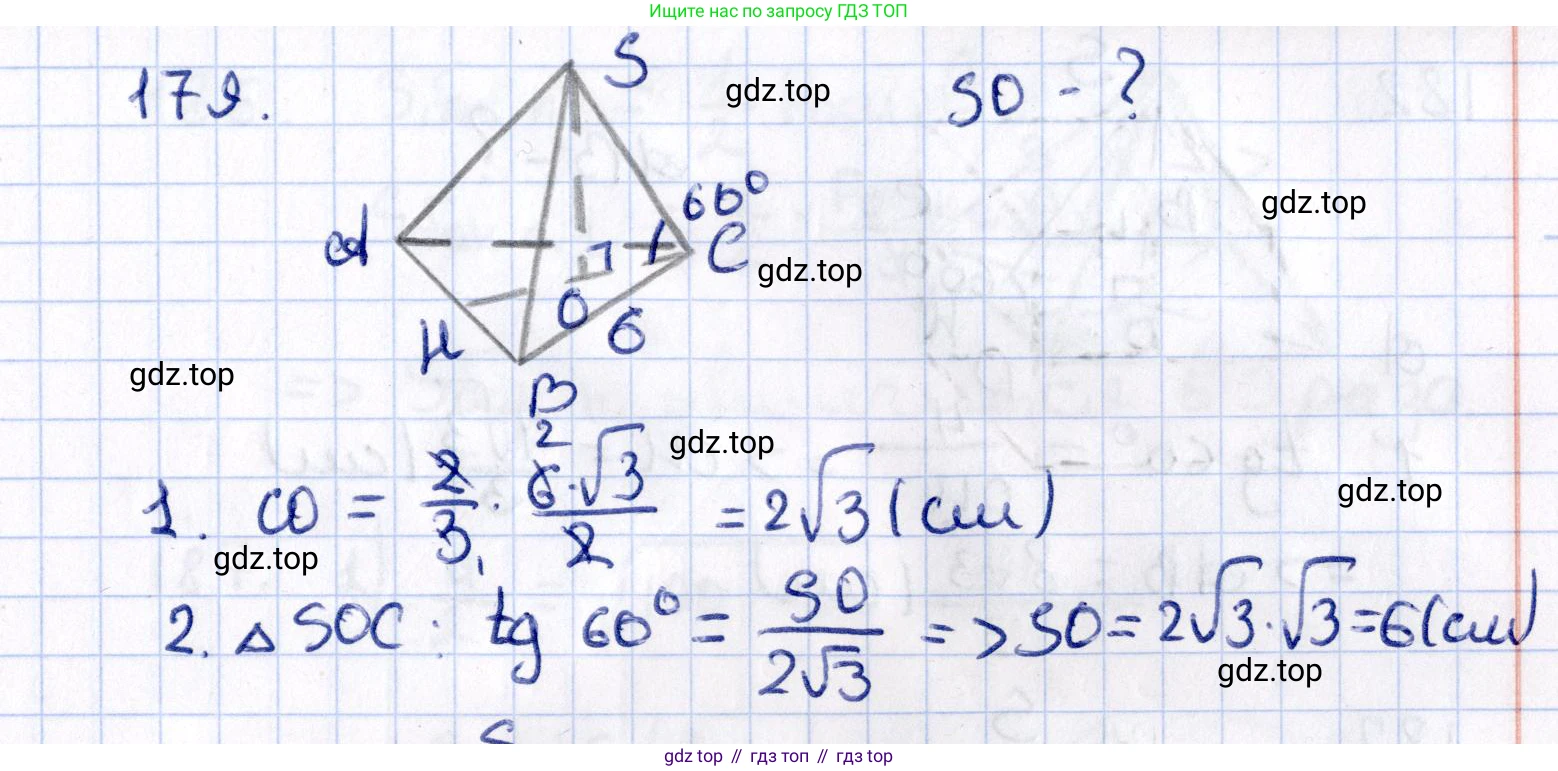 Ищите нас по запросу ГДЗ ТОП
179.
S
gdz.top
SO - ?
60°
gdz.top
A
C
gdz.top
O
6
H
gdz.top
B
gdz.top
1. CO = 2/3 · 6·√3/2 = 2√3 (см)
2
gdz.top
gdz.top
2. △ SOC : tg 60° = SO/2√3 => SO = 2√3·√3 = 6 (см)
gdz.top
gdz top // гдз топ // гдз top